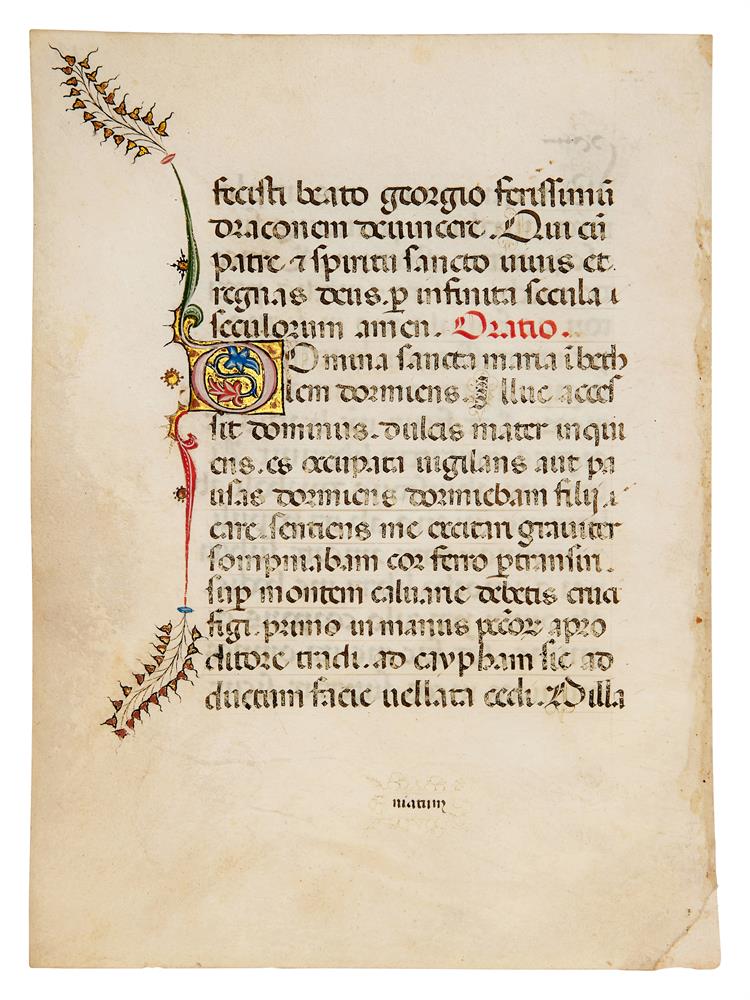 fecisti beato georgio ferissimũ
draconem deuincere. Qui cũ
patre ⁊ spiritu sancto uiuis et
regnas deus. p̱ infinita secula
seculorum amen. Oratio.
Domina sancta maria ĩ beth
lem dormiens. Illuc acces
sit dominus. dulcis mater inqui
ens. es occupata uigilans aut pa
usas dormiens dormiebam filij
care. sentiens me excitari grauiter
sompniabam cor ferro p̱transiri.
sup̱ montem caluarie debetis cruci
figi. primo in manus a pro
ditore tradi. ad caypham sic ad
ductum facie uellata cedi. Villa
niatum